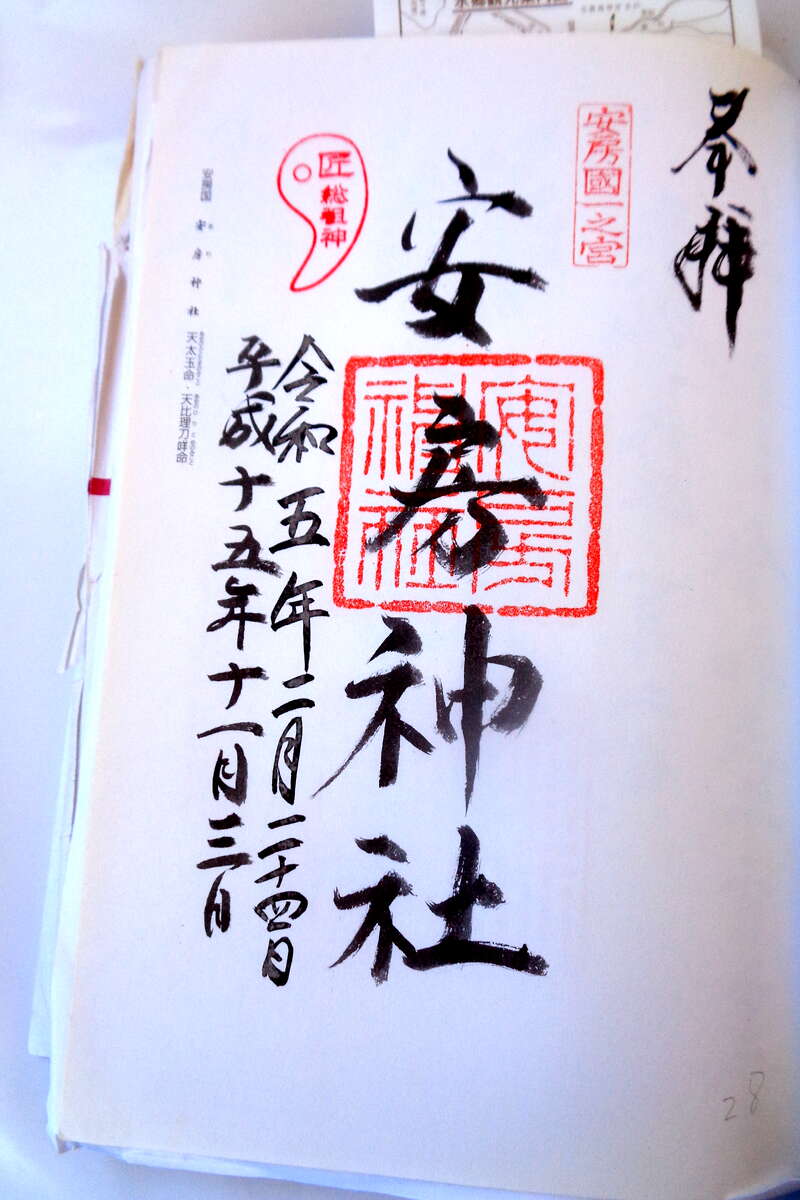 奉拝
安房國一之宮
安房神社
安房神社
匠
総祖神
令和五年二月二十四日
平成十五年十一月三日
安房国 安房神社 天太玉命・天比理刀咩命
28